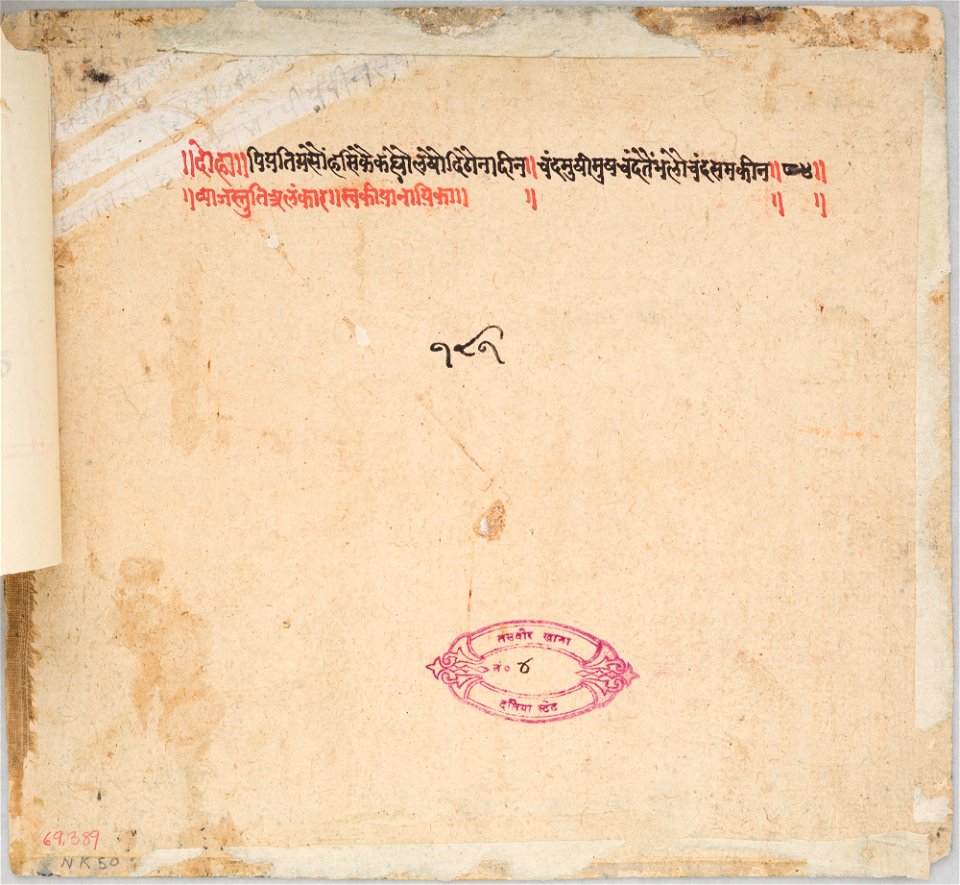 ॥दोहा॥ पियतियसौंहसिकैकह्यौलषौदिठौनादीन॥चंदमुषीमुषचंदतैंभलोचंदसमकीन॥
॥व्याजस्तुतिअलंकार॥स्वकीयानायिका॥ ॥ ॥ ॥
१८१
तसवीर खाना
नं० ४
दतिया स्टेट
69.389
NK50